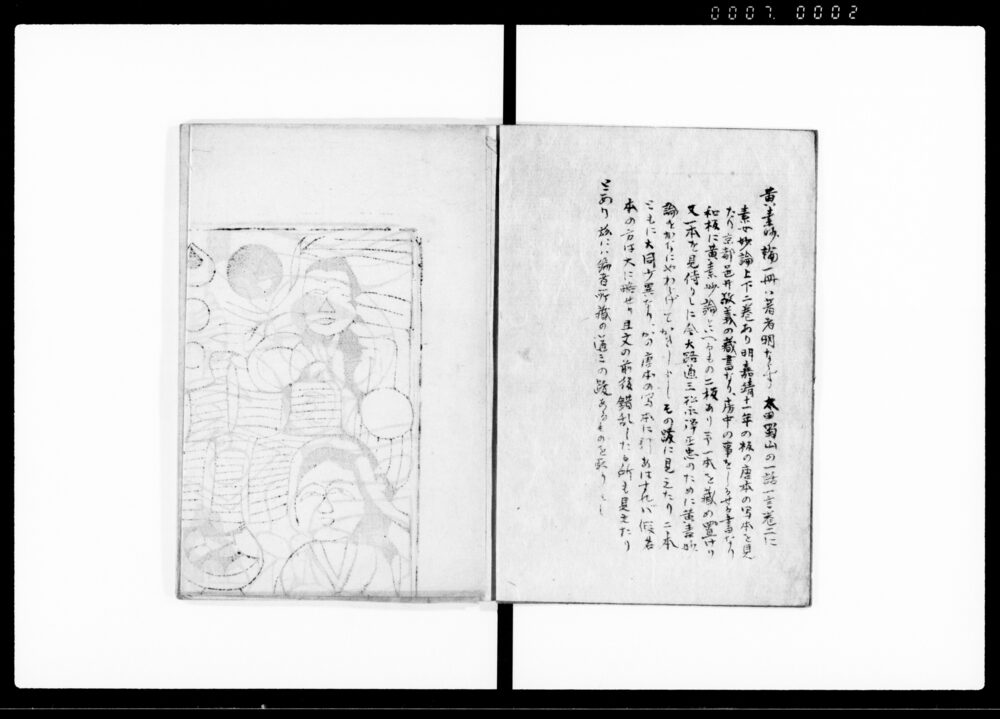 0007 0002
黄素妙論一冊ハ著者明ならす 太田蜀山の一話一言巻三に
素女妙論上下二巻あり明嘉靖十一年の板の唐本の写本を見
たり京都邑井敬義の蔵書なり、房中の事をしるせる書なり
和板に黄素妙論といへるもの二板あり予一本を蔵め置けり
又一本を見侍りしに今大路道三松永弾正忠のために黄素妙
論をかなにやわらけてかきしよしその跋に見えたり二本
ともに大同少異なり、かの唐本の写本に引あはすれハ仮名
本の方は大に 且文の前後錯乱したる所も見えたり
とあり 故に 編者所蔵の道三の跋あるものを